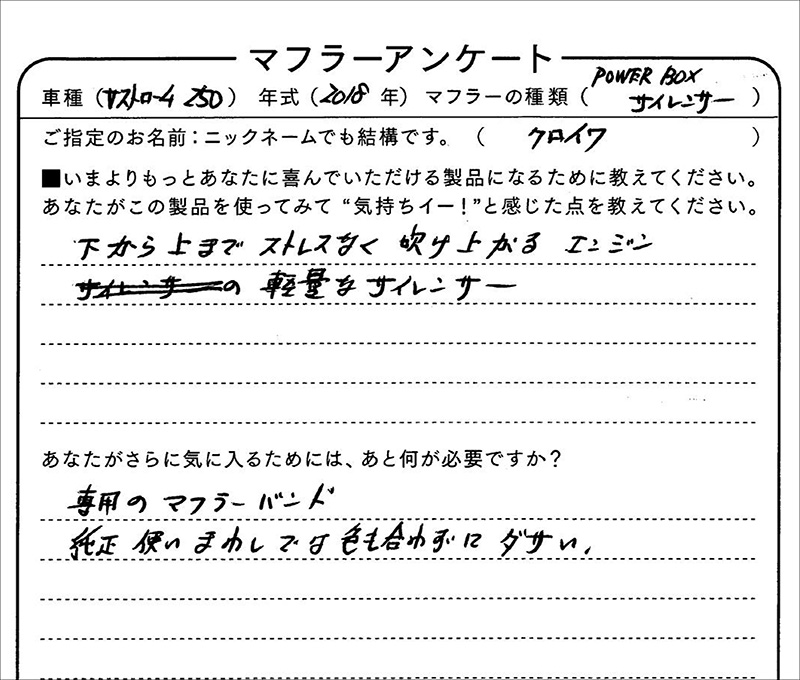 マフラーアンケート
車種（Vストローム 250） 年式（2018 年） マフラーの種類（ POWER BOX サイレンサー ）
ご指定のお名前：ニックネームでも結構です。（ クロイワ ）
■いまよりもっとあなたに喜んでいただける製品になるために教えてください。
あなたがこの製品を使ってみて “気持ちイー！”と感じた点を教えてください。
下から上まで ストレスなく 吹け上がる エンジン
サイレンサーの 軽量なサイレンサー
あなたがさらに気に入るためには、あと何が必要ですか？
専用の マフラーバンド
純正 使いまわしでは 色も合わずに ダサい.